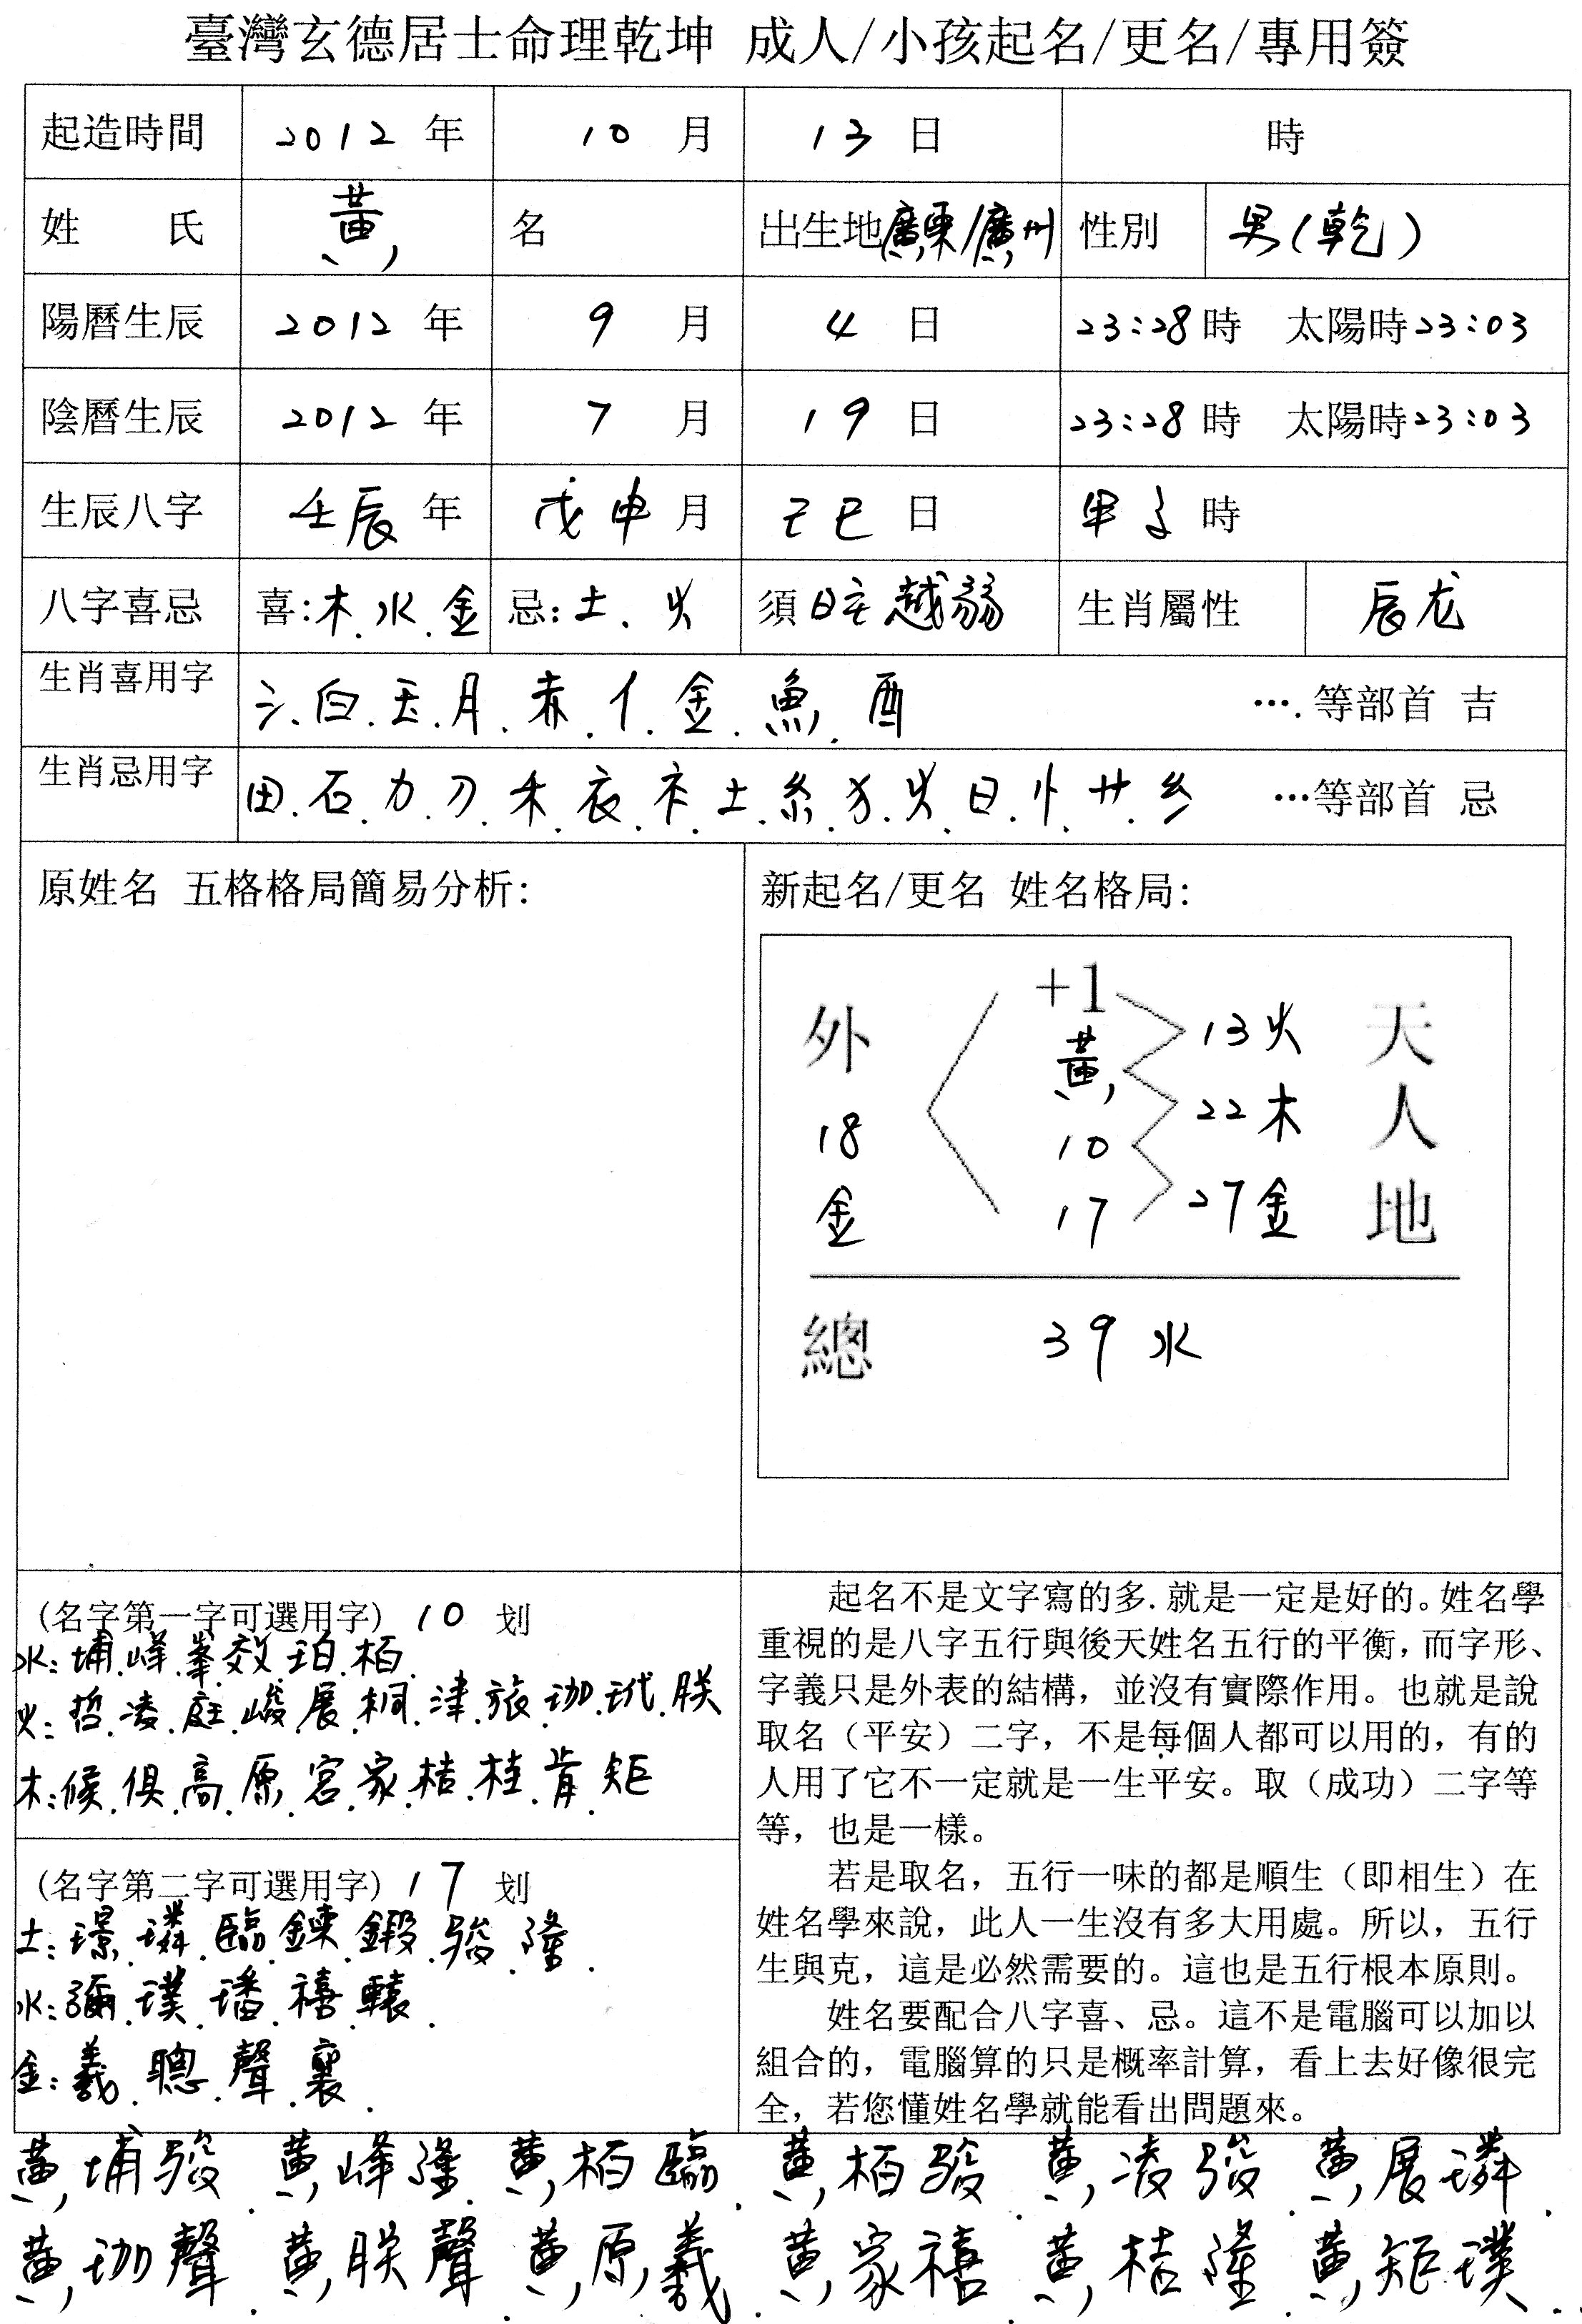 臺灣玄德居士命理乾坤 成人/小孩起名/更名/專用簽
起造時間 2012 年 10 月 13 日 時
姓 氏 黃 名 出生地廣東/廣州 性別 男(乾)
陽曆生辰 2012 年 9 月 4 日 23:28時 太陽時23:03
陰曆生辰 2012 年 7 月 19 日 23:28時 太陽時23:03
生辰八字 壬辰 年 戊申 月 己巳 日 甲子 時
八字喜忌 喜:木.水.金 忌:土.火 須日主越弱 生肖屬性 辰龙
生肖喜用字 氵.白.玉.月.赤.亻.金.魚.酉 ….等部首 吉
生肖忌用字 田.石.力.刀.禾.衣.衤.土.糸.犭.火.日.忄.艹.纟 …等部首 忌
原姓名 五格格局簡易分析:
新起名/更名 姓名格局:
+1
外 黃 13火 天
18 10 22木 人
金 17 27金 地
總 39 水
(名字第一字可選用字) 10 划
水:埔.峰.峯.效.珀.栢.
火:哲.凌.庭.峻.展.桐.津.旅.珈.玳.朕
木:候.俱.高.原.宮.家.桔.桂.肯.矩
(名字第二字可選用字) 17 划
土:璟.璘.臨.鍊.鍛.駿.隆.
水:彌.璞.璠.禧.轅.
金:羲.聰.聲.襄.
起名不是文字寫的多.就是一定是好的。姓名學
重視的是八字五行與後天姓名五行的平衡，而字形、
字義只是外表的結構，並沒有實際作用。也就是說
取名（平安）二字，不是每個人都可以用的，有的
人用了它不一定就是一生平安。取（成功）二字等
等，也是一樣。
若是取名，五行一味的都是順生（即相生）在
姓名學來說，此人一生沒有多大用處。所以，五行
生與克，這是必然需要的。這也是五行根本原則。
姓名要配合八字喜、忌。這不是電腦可以加以
組合的，電腦算的只是概率計算，看上去好像很完
全，若您懂姓名學就能看出問題來。
黃埔駿.黃峰隆.黃栢臨.黃栢駿.黃凌駿.黃展璘.
黃珈聲.黃朕聲.黃原羲.黃家禧.黃桔隆.黃矩璞...